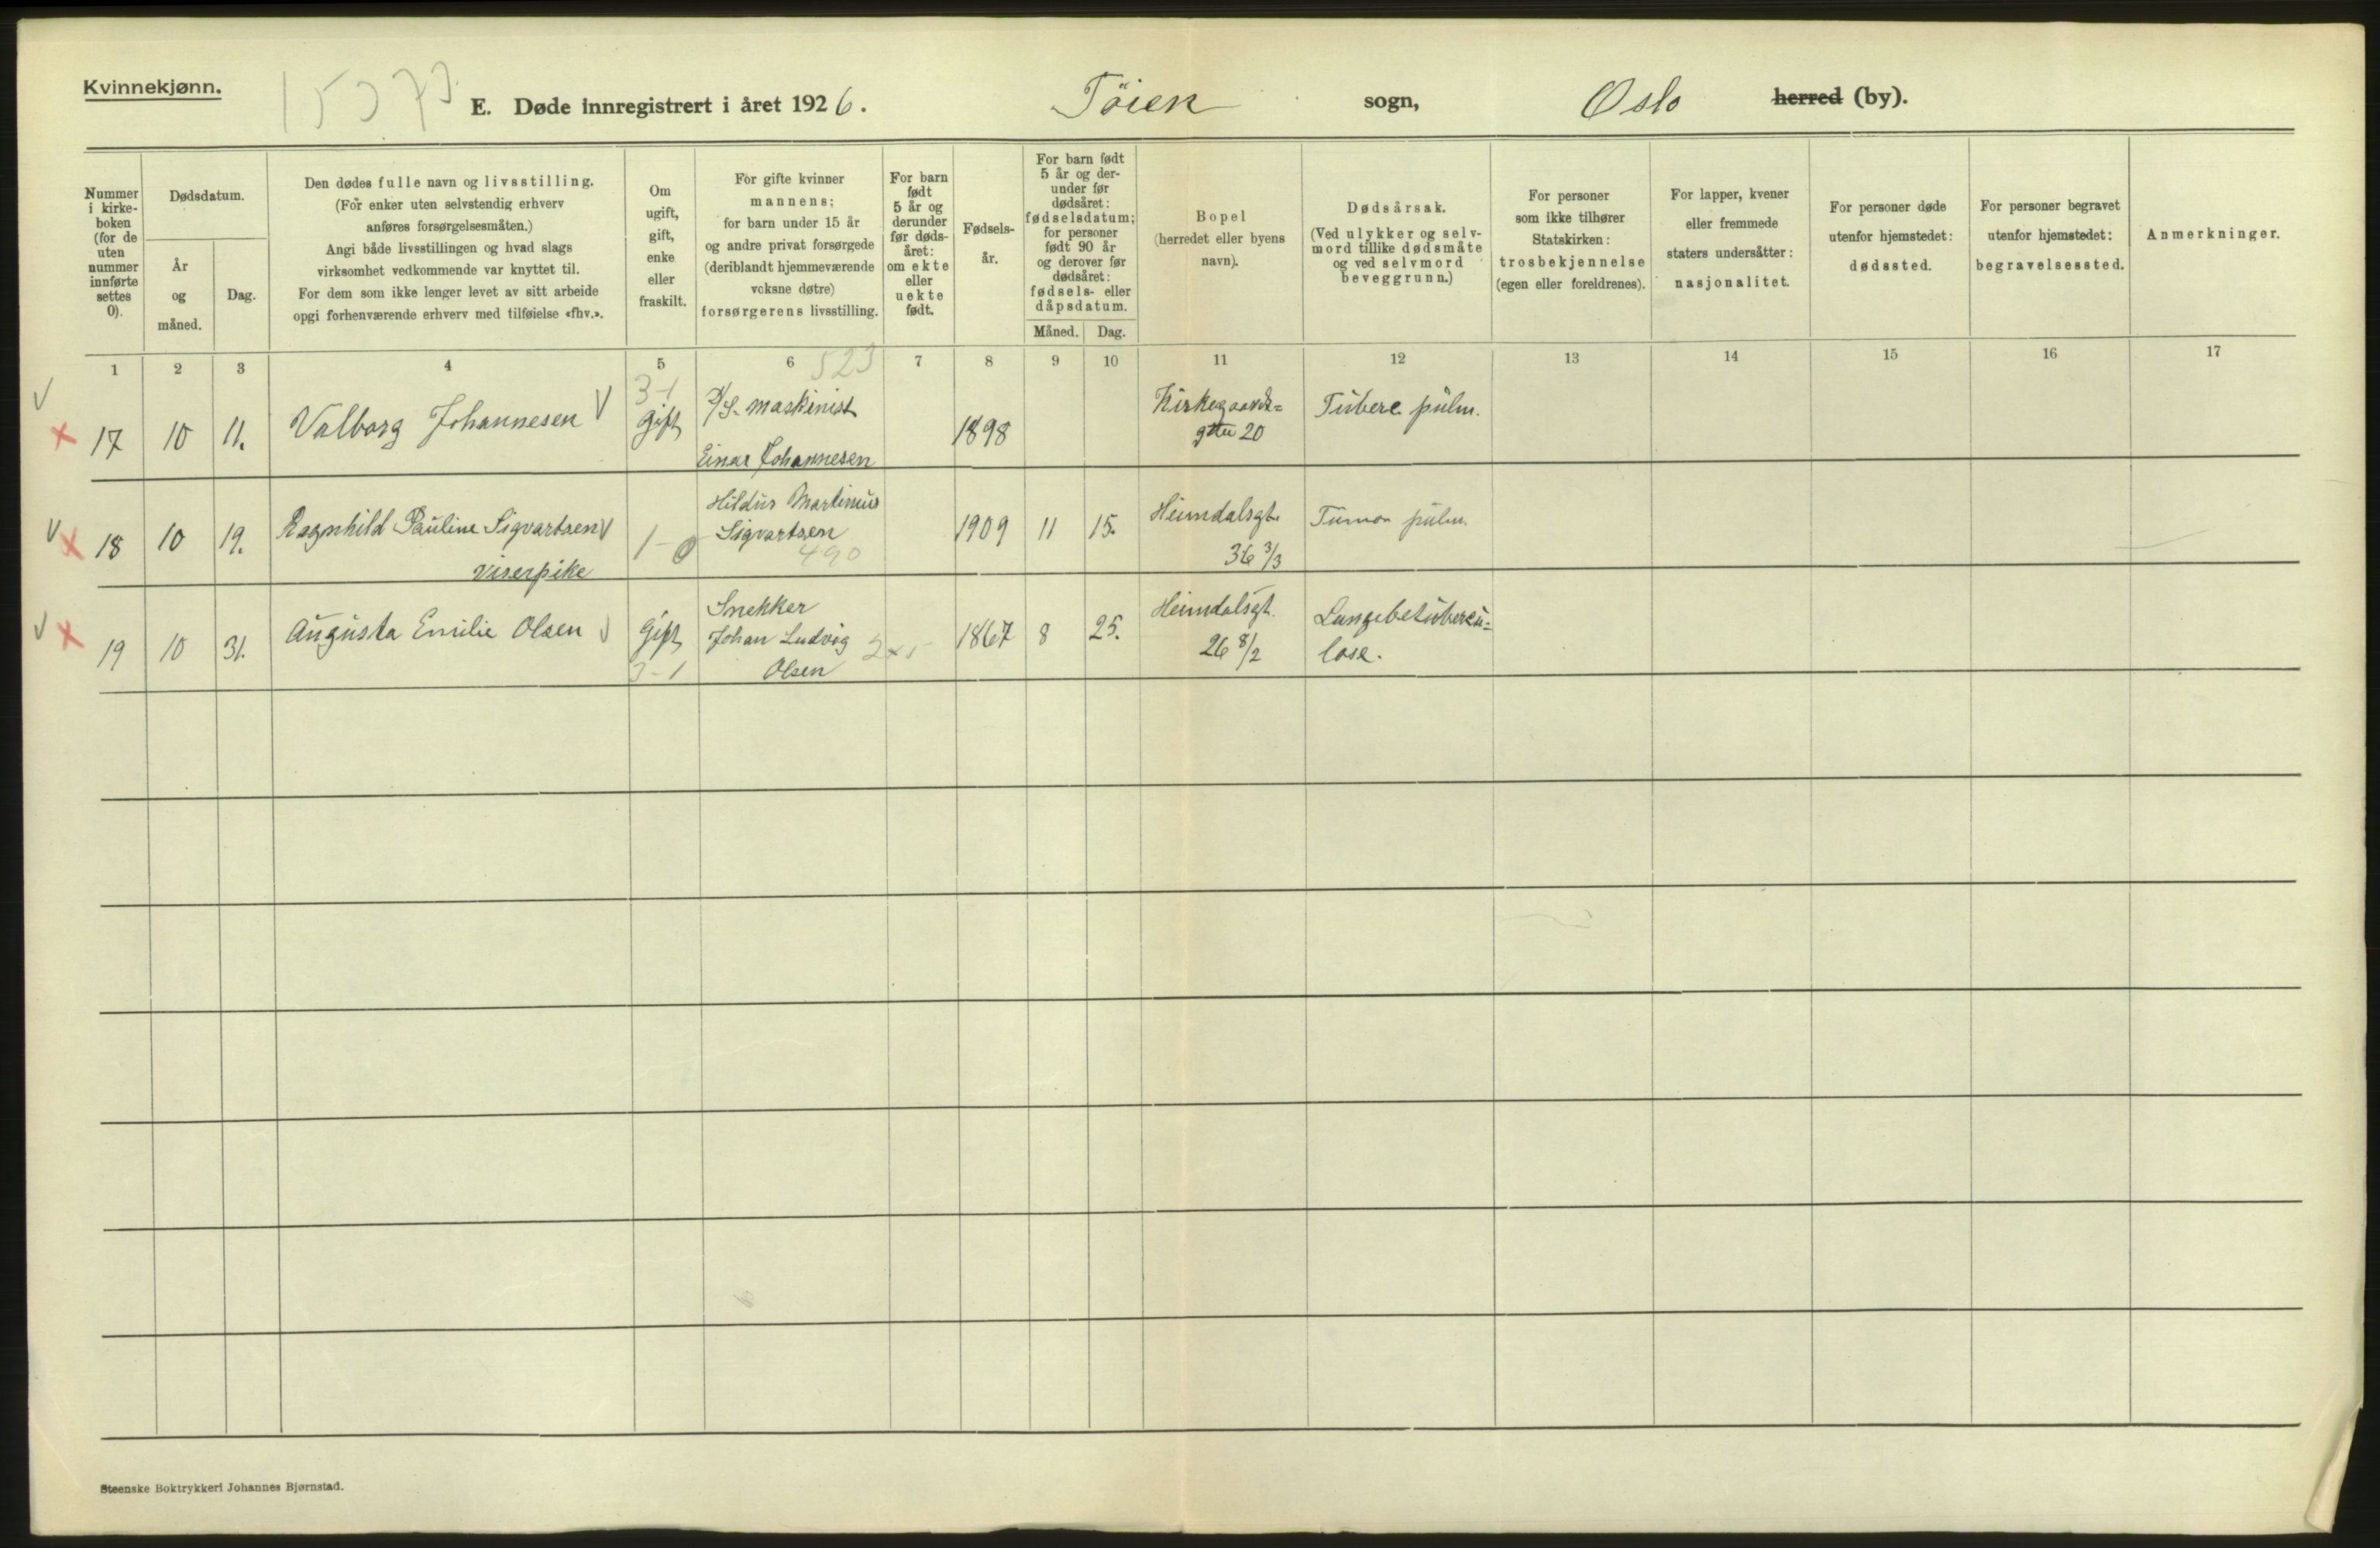 Kvinnekjønn.
15373
E. Døde innregistrert i året 1926. Tøien sogn, Oslo herred (by).
Nummer i kirke-
boken
(for de
uten
nummer
innførte
settes
0).
Dødsdatum.
År
og
måned.
Dag.
Den dødes fulle navn og livsstilling.
(For enker uten selvstendig erhverv
anføres forsørgelsesmåten.)
Angi både livsstillingen og hvad slags
virksomhet vedkommende var knyttet til.
For dem som ikke lenger levet av sitt arbeide
opgi forhenværende erhverv med tilføielse «fhv.».
Om
ugift,
gift,
enke
eller
fraskilt.
For gifte kvinner
mannens;
for barn under 15 år
og andre privat forsørgede
(deriblandt hjemmeværende
voksne døtre)
forsørgerens livsstilling.
For barn
født
5 år og
derunder
før døds-
året:
om ekte
eller
uekte
født.
Fødsels-
år.
For barn født
5 år og der-
under før
dødsåret:
fødselsdatum;
for personer
født 90 år
og derover før
dødsåret:
fødsels- eller
dåpsdatum.
Måned. Dag.
Bopel
(herredet eller byens
navn).
Dødsårsak.
(Ved ulykker og selv-
mord tillike dødsmåte
og ved selvmord
beveggrunn.)
For personer
som ikke tilhører
Statskirken:
trosbekjennelse
(egen eller foreldrenes).
For lapper, kvener
eller fremmede
staters undersåtter:
nasjonalitet.
For personer døde
utenfor hjemstedet:
dødssted.
For personer begravet
utenfor hjemstedet:
begravelsessted.
Anmerkninger.
1 2 3 4 5 6 7 8 9 10 11 12 13 14 15 16 17
523
17 10 11. Valborg Johannesen
3-1
gift
maskinist
Einar Johannesen
1898
Kirkegaards=
gtn 20
Tuberc. pulm.
18 10 19. Ragnhild Pauline Sigvartsen
viserpike
1-0
Hildus Martinius
Sigvartsen
490
1909 11 15.
Heimdalsgt.
36 3/3
Tumor pulm.
19 10 31. Augusta Emilie Olsen
Gift
3-1
Snekker
Johan Ludvig
Olsen
1867 8 25.
Heimdalsgt.
26 8/2
Lungebetuberku=
lose.
Steenske Boktrykkeri Johannes Bjørnstad.